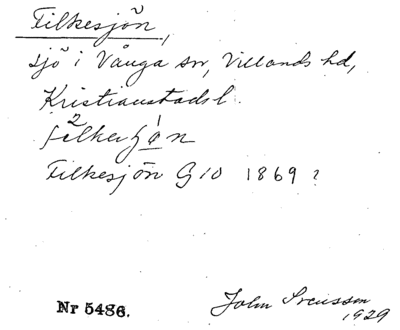 Tilkesjön,
sjö i Vånga sn, Villands hd,
Kristianstads l.
Tilkesjön G10 1869 ?
Nr 5486.
John Svensson
1929